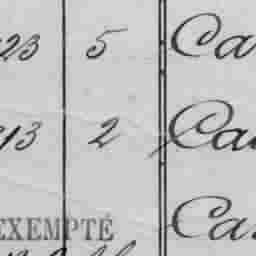 23 5 Ca
13 2 Ca
Ca
EXEMPTÉ